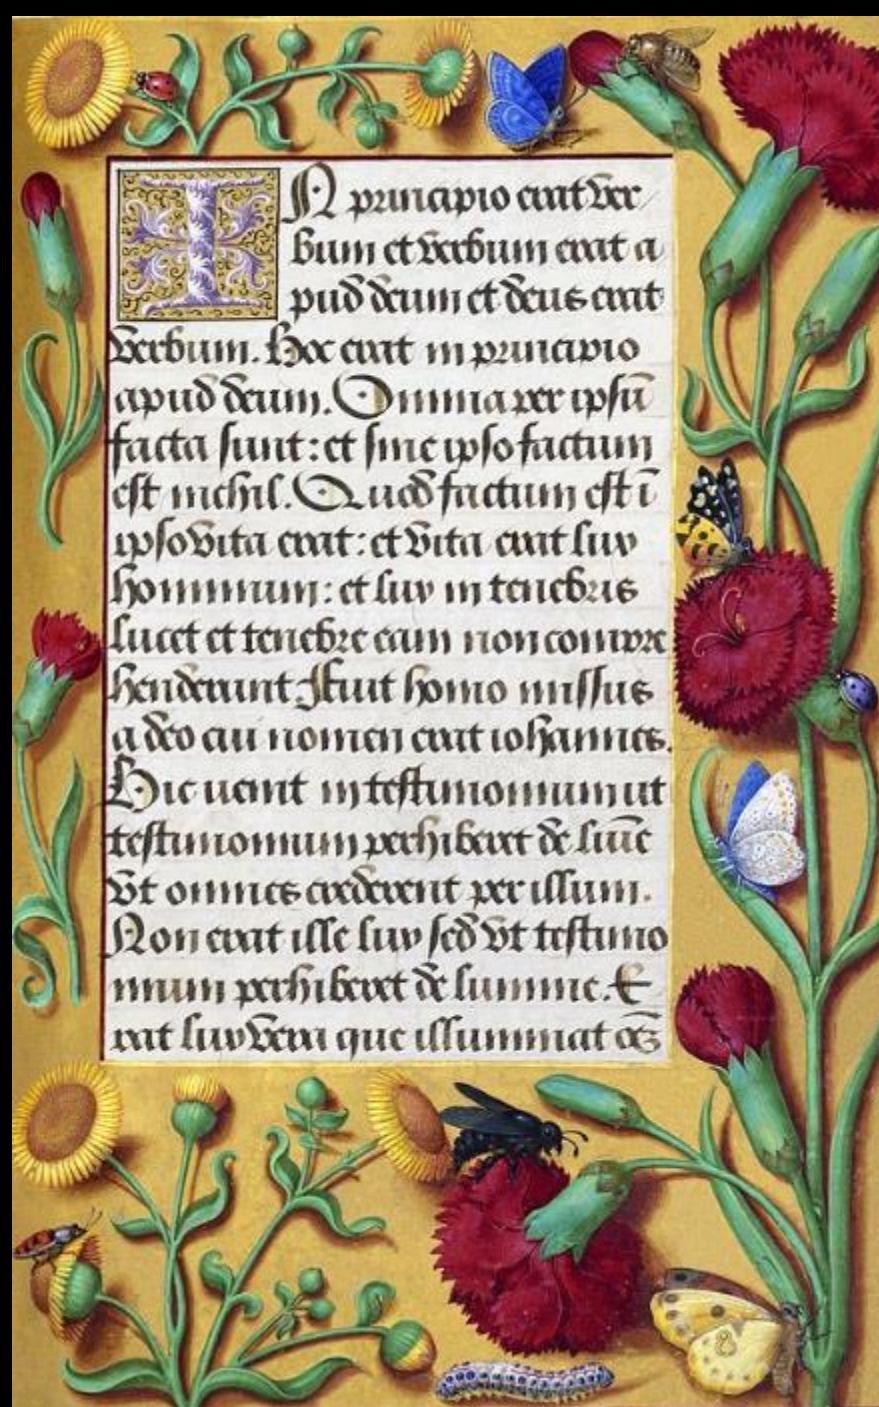 IN principio erat ver
bum et verbum erat a
pud deum et deus erat
verbum. Hoc erat in principio
apud deum. Omnia per ipsū
facta sunt: et sine ipso factum
est nichil. Quod factum est ī
ipso vita erat: et vita erat lux
hominum: et lux in tenebris
lucet et tenebre eam non compre
henderunt Fuit homo missus
a deo cui nomen erat iohannes.
Hic uenit in testimonium ut
testimonium perhiberet de lumīe
vt omnes crederent per illum.
Non erat ille lux sed vt testimo
nium perhiberet de lumine. E
rat lux vera que illuminat oēs